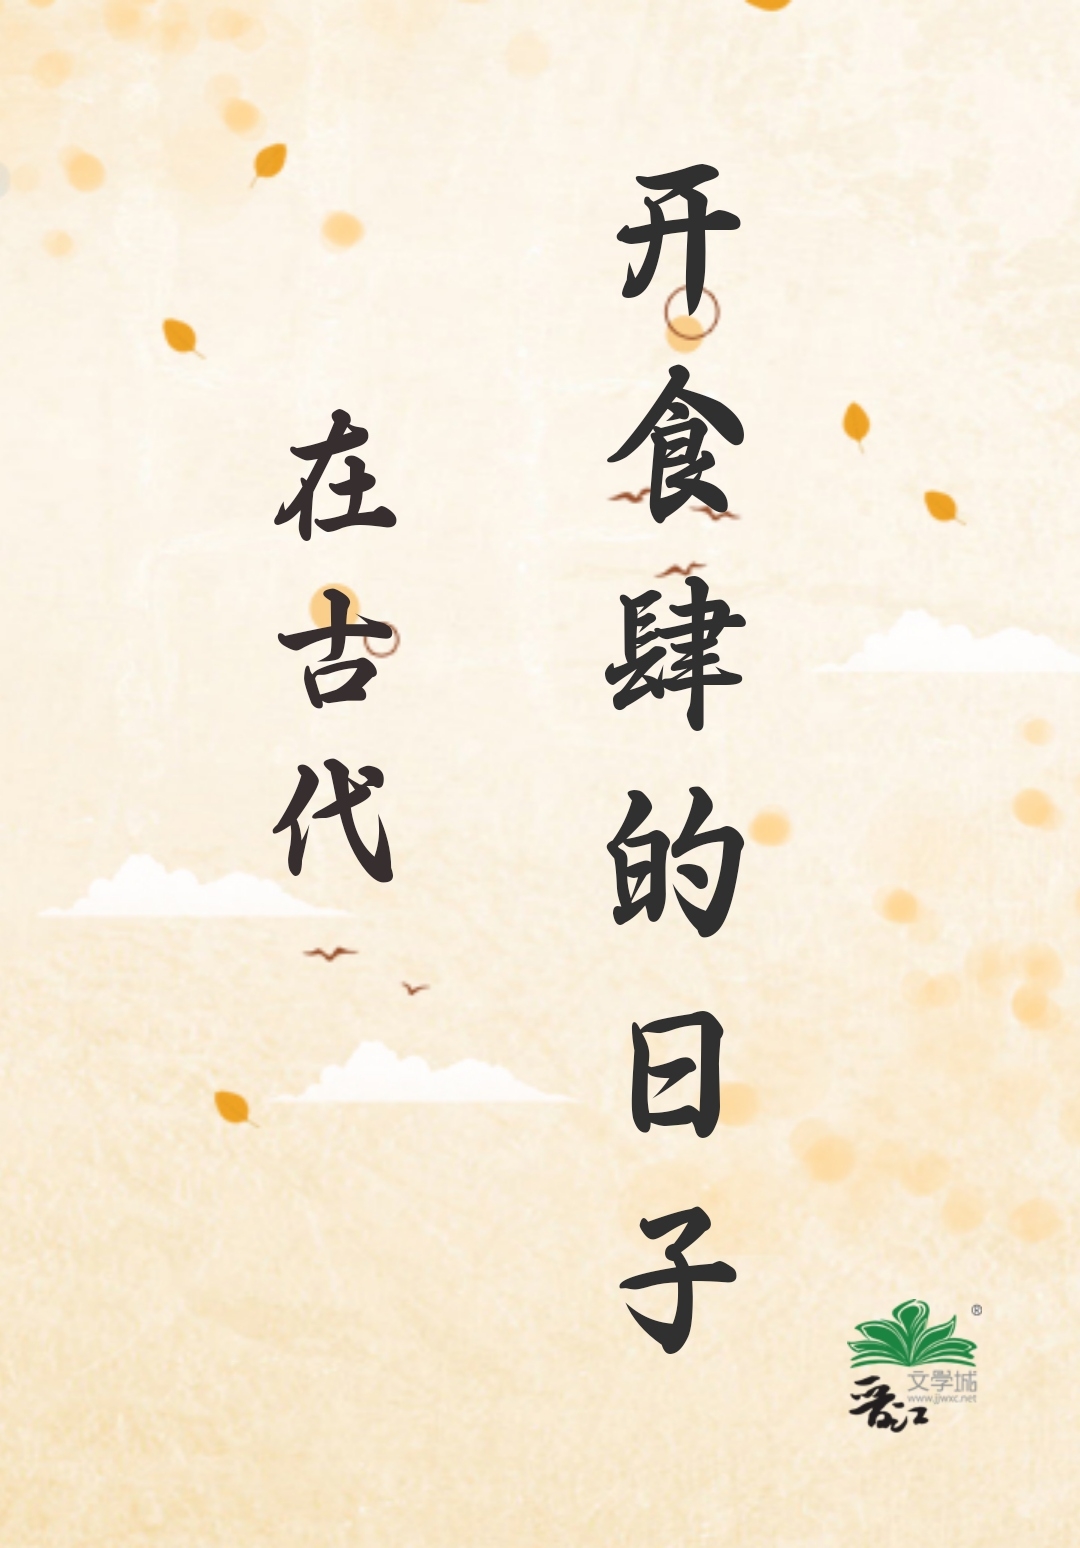 开食肆的日子
在古代
®
文學城
www.jjwxc.net
晋江